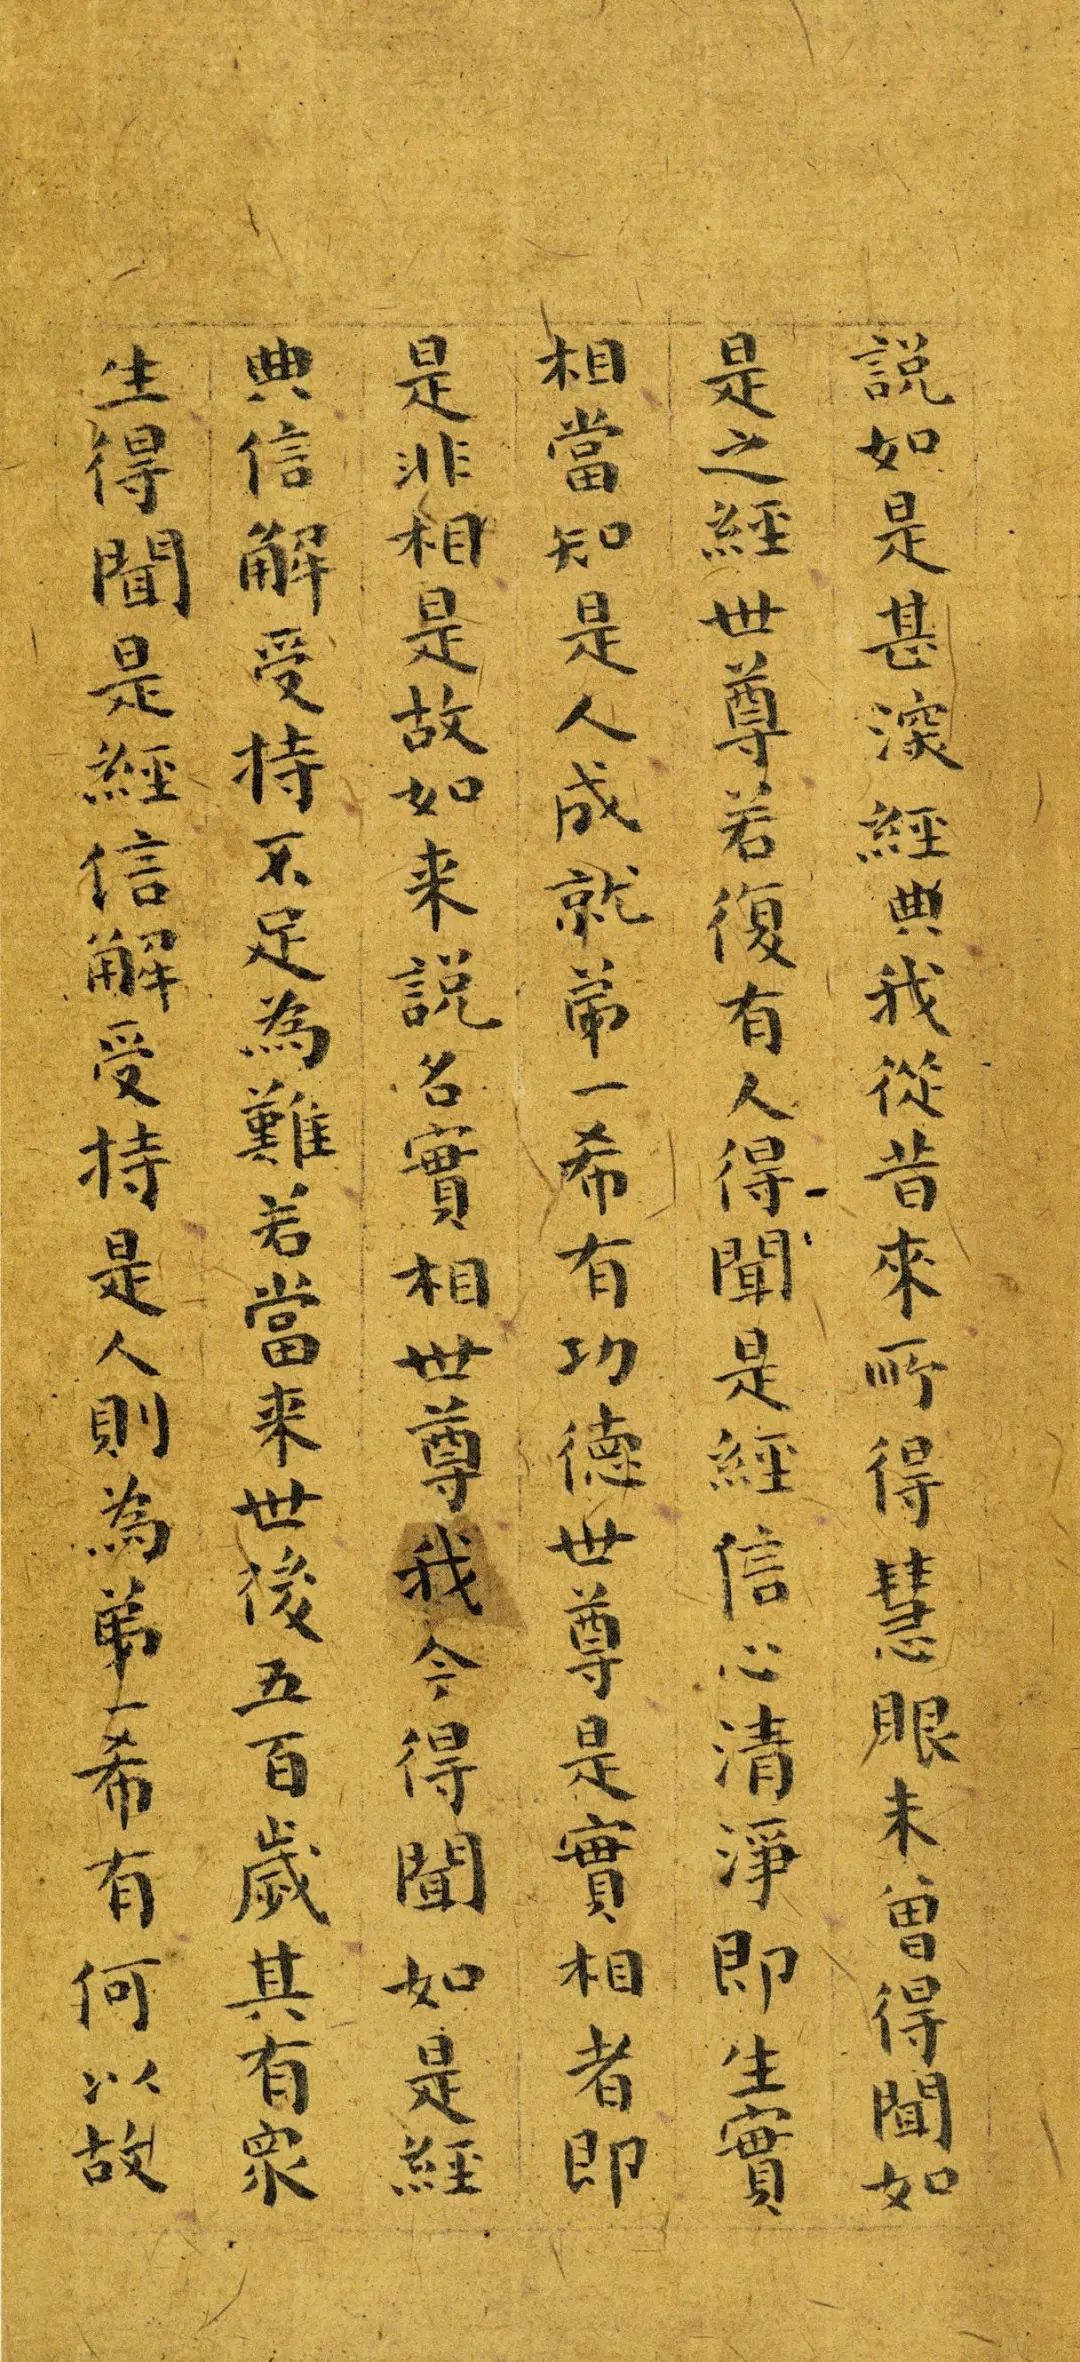 説如是甚深經典我從昔來所得慧眼未曾得聞如
是之經世尊若復有人得聞是經信心清淨即生實
相當知是人成就苐一希有功德世尊是實相者即
是非相是故如来説名實相世尊我今得聞如是經
典信解受持不足為難若當来世後五百歲其有衆
生得聞是經信解受持是人則為苐一希有何以故